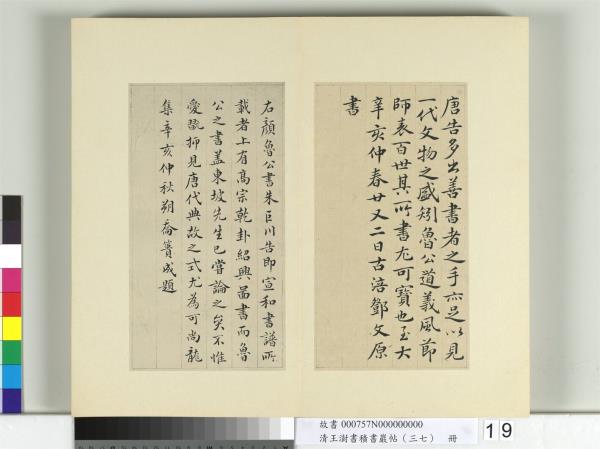 唐告多出善書者之手亦足以見
一代文物之盛矧魯公道義風節
師表百世其所書尤可寶也至大
辛亥仲春廿又二日古涪鄧文原
書
右顏魯公書朱巨川告即宣和書譜所
載者上有高宗乾卦紹興啚書而魯
公之書蓋東坡先生已嘗論之矣不惟
愛翫抑見唐代典故之式尤為可尚龍
集辛亥仲秋朔喬簣成題
故書 000757N000000000
清王澍書積書巖帖(三七) 冊
19